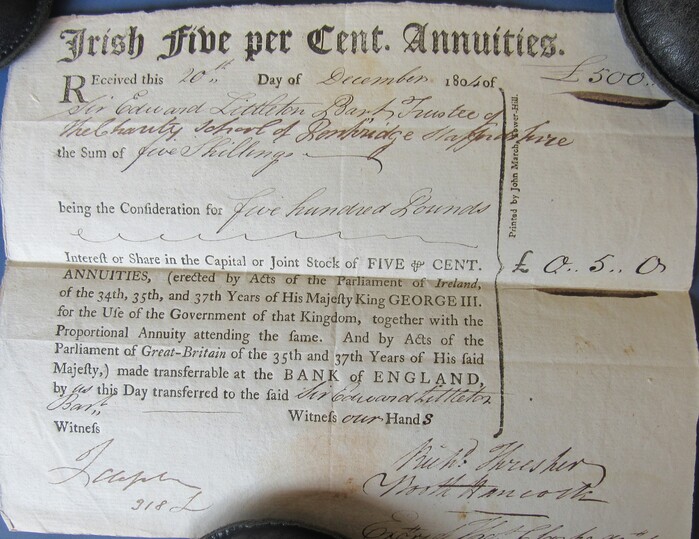 Irish Five per Cent. Annuities.
Received this 20th Day of December 1804 of £500..
Sir Edward Littleton Bart Trustee of
the Charity School of Penkridge Staffordshire
the Sum of five Shillings
being the Conſideration for five hundred Pounds
Intereſt or Share in the Capital or Joint Stock of FIVE ⅌ CENT.
ANNUITIES, (erected by Acts of the Parliament of Ireland,
of the 34th, 35th, and 37th Years of His Majeſty King GEORGE III.
for the Uſe of the Government of that Kingdom, together with the
Proportional Annuity attending the ſame. And by Acts of the
Parliament of Great-Britain of the 35th and 37th Years of His ſaid
Majeſty,) made transferrable at the BANK of ENGLAND,
by us this Day transferred to the ſaid Sir Edward Littleton
Bart
Witneſs our Hands
Witneſs
Richd. Thresher
North Hancock
318
Printed by John March, Tower-Hill.
£ 0..5..0